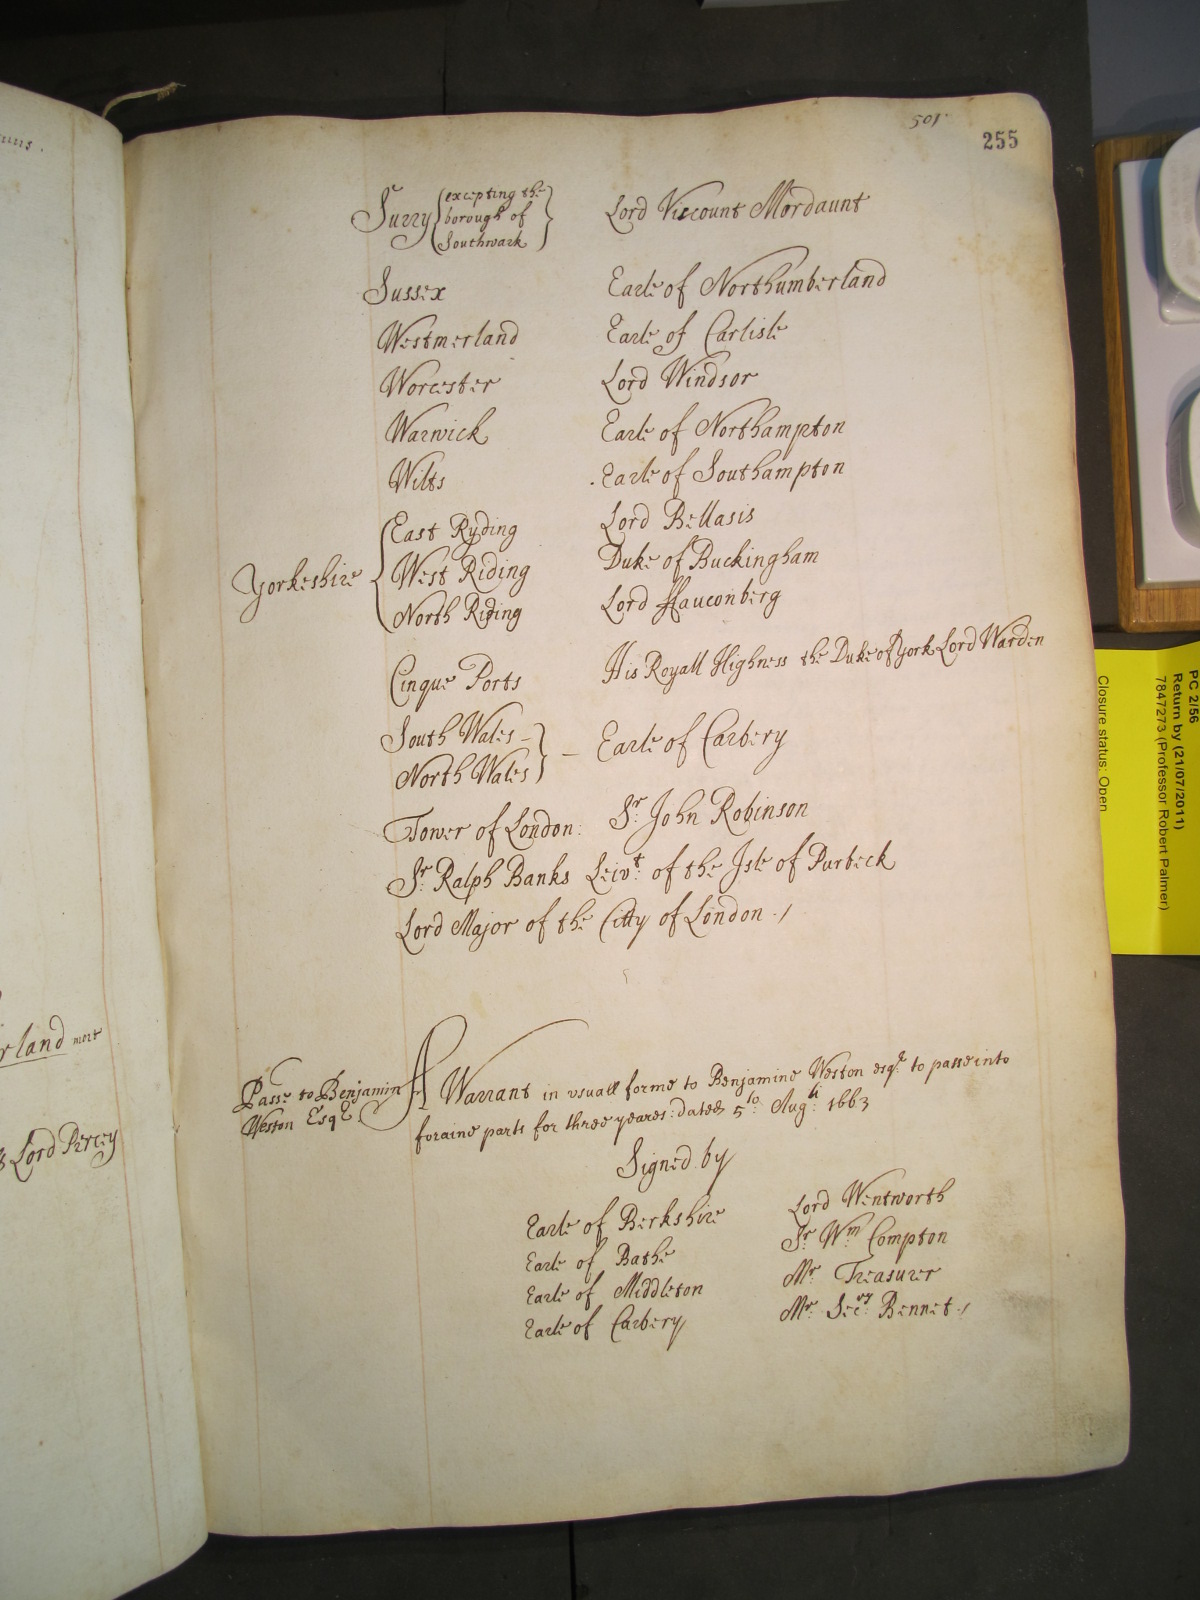 501
255
Surry {excepting the borough of Southwark} Lord Viscount Mordaunt
Sussex Earle of Northumberland
Westmerland Earle of Carlisle
Worcester Lord Windsor
Warwick Earle of Northampton
Wilts Earle of Southampton
Yorkeshire { East Ryding Lord Bellasis
West Riding Duke of Buckingham
North Riding Lord ffauconberg
Cinque Ports His Royall Highness the Duke of york Lord Warden
South Wales –
North Wales } – Earle of Carbery
Tower of London: Sr. John Robinson
Sr. Ralph Banks Leivt. of the Isle of Purbeck
Lord Major of the Citty of London ./
Passe to Benjamin
Weston Esqe.
A Warrant in usuall forme to Benjamine Weston esqe. to passe into
foraine parts for three yeares: dated 5to. Augti. 1663
Signed by
Earle of Berkshire Lord Wentworth
Earle of Bathe Sr Wm Compton
Earle of Middleton Mr. Treasurer
Earle of Carbery Mr. Secry. Bennet ./
rland more
Lord Percey
PC 2/56
Return by (21/07/2011)
7847273 (Professor Robert Palmer)
Closure status: Open